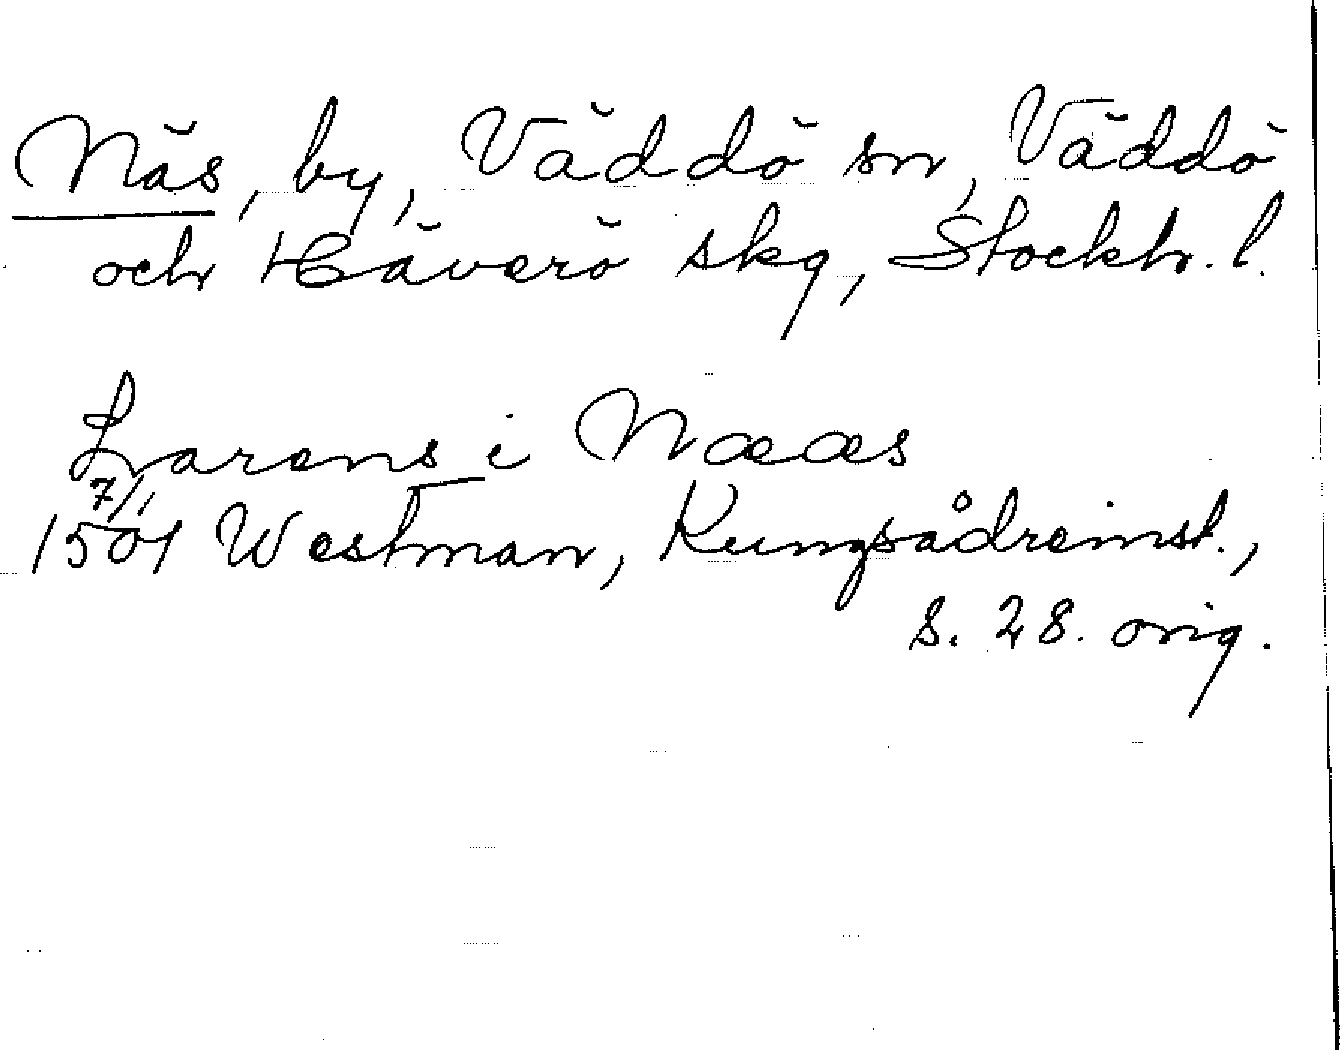 Näs, by, Väddö sn, Väddö
och Häverö skg, Stockh. l.
Larens i Nææs
7/1
1501 Westman, Kungsådreinst.,
s. 28. orig.